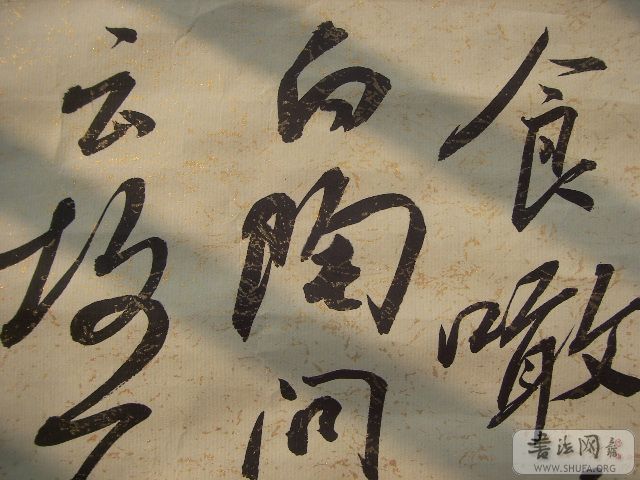 食噉
白陶问
云
書法网
WWW.SHUFA.ORG